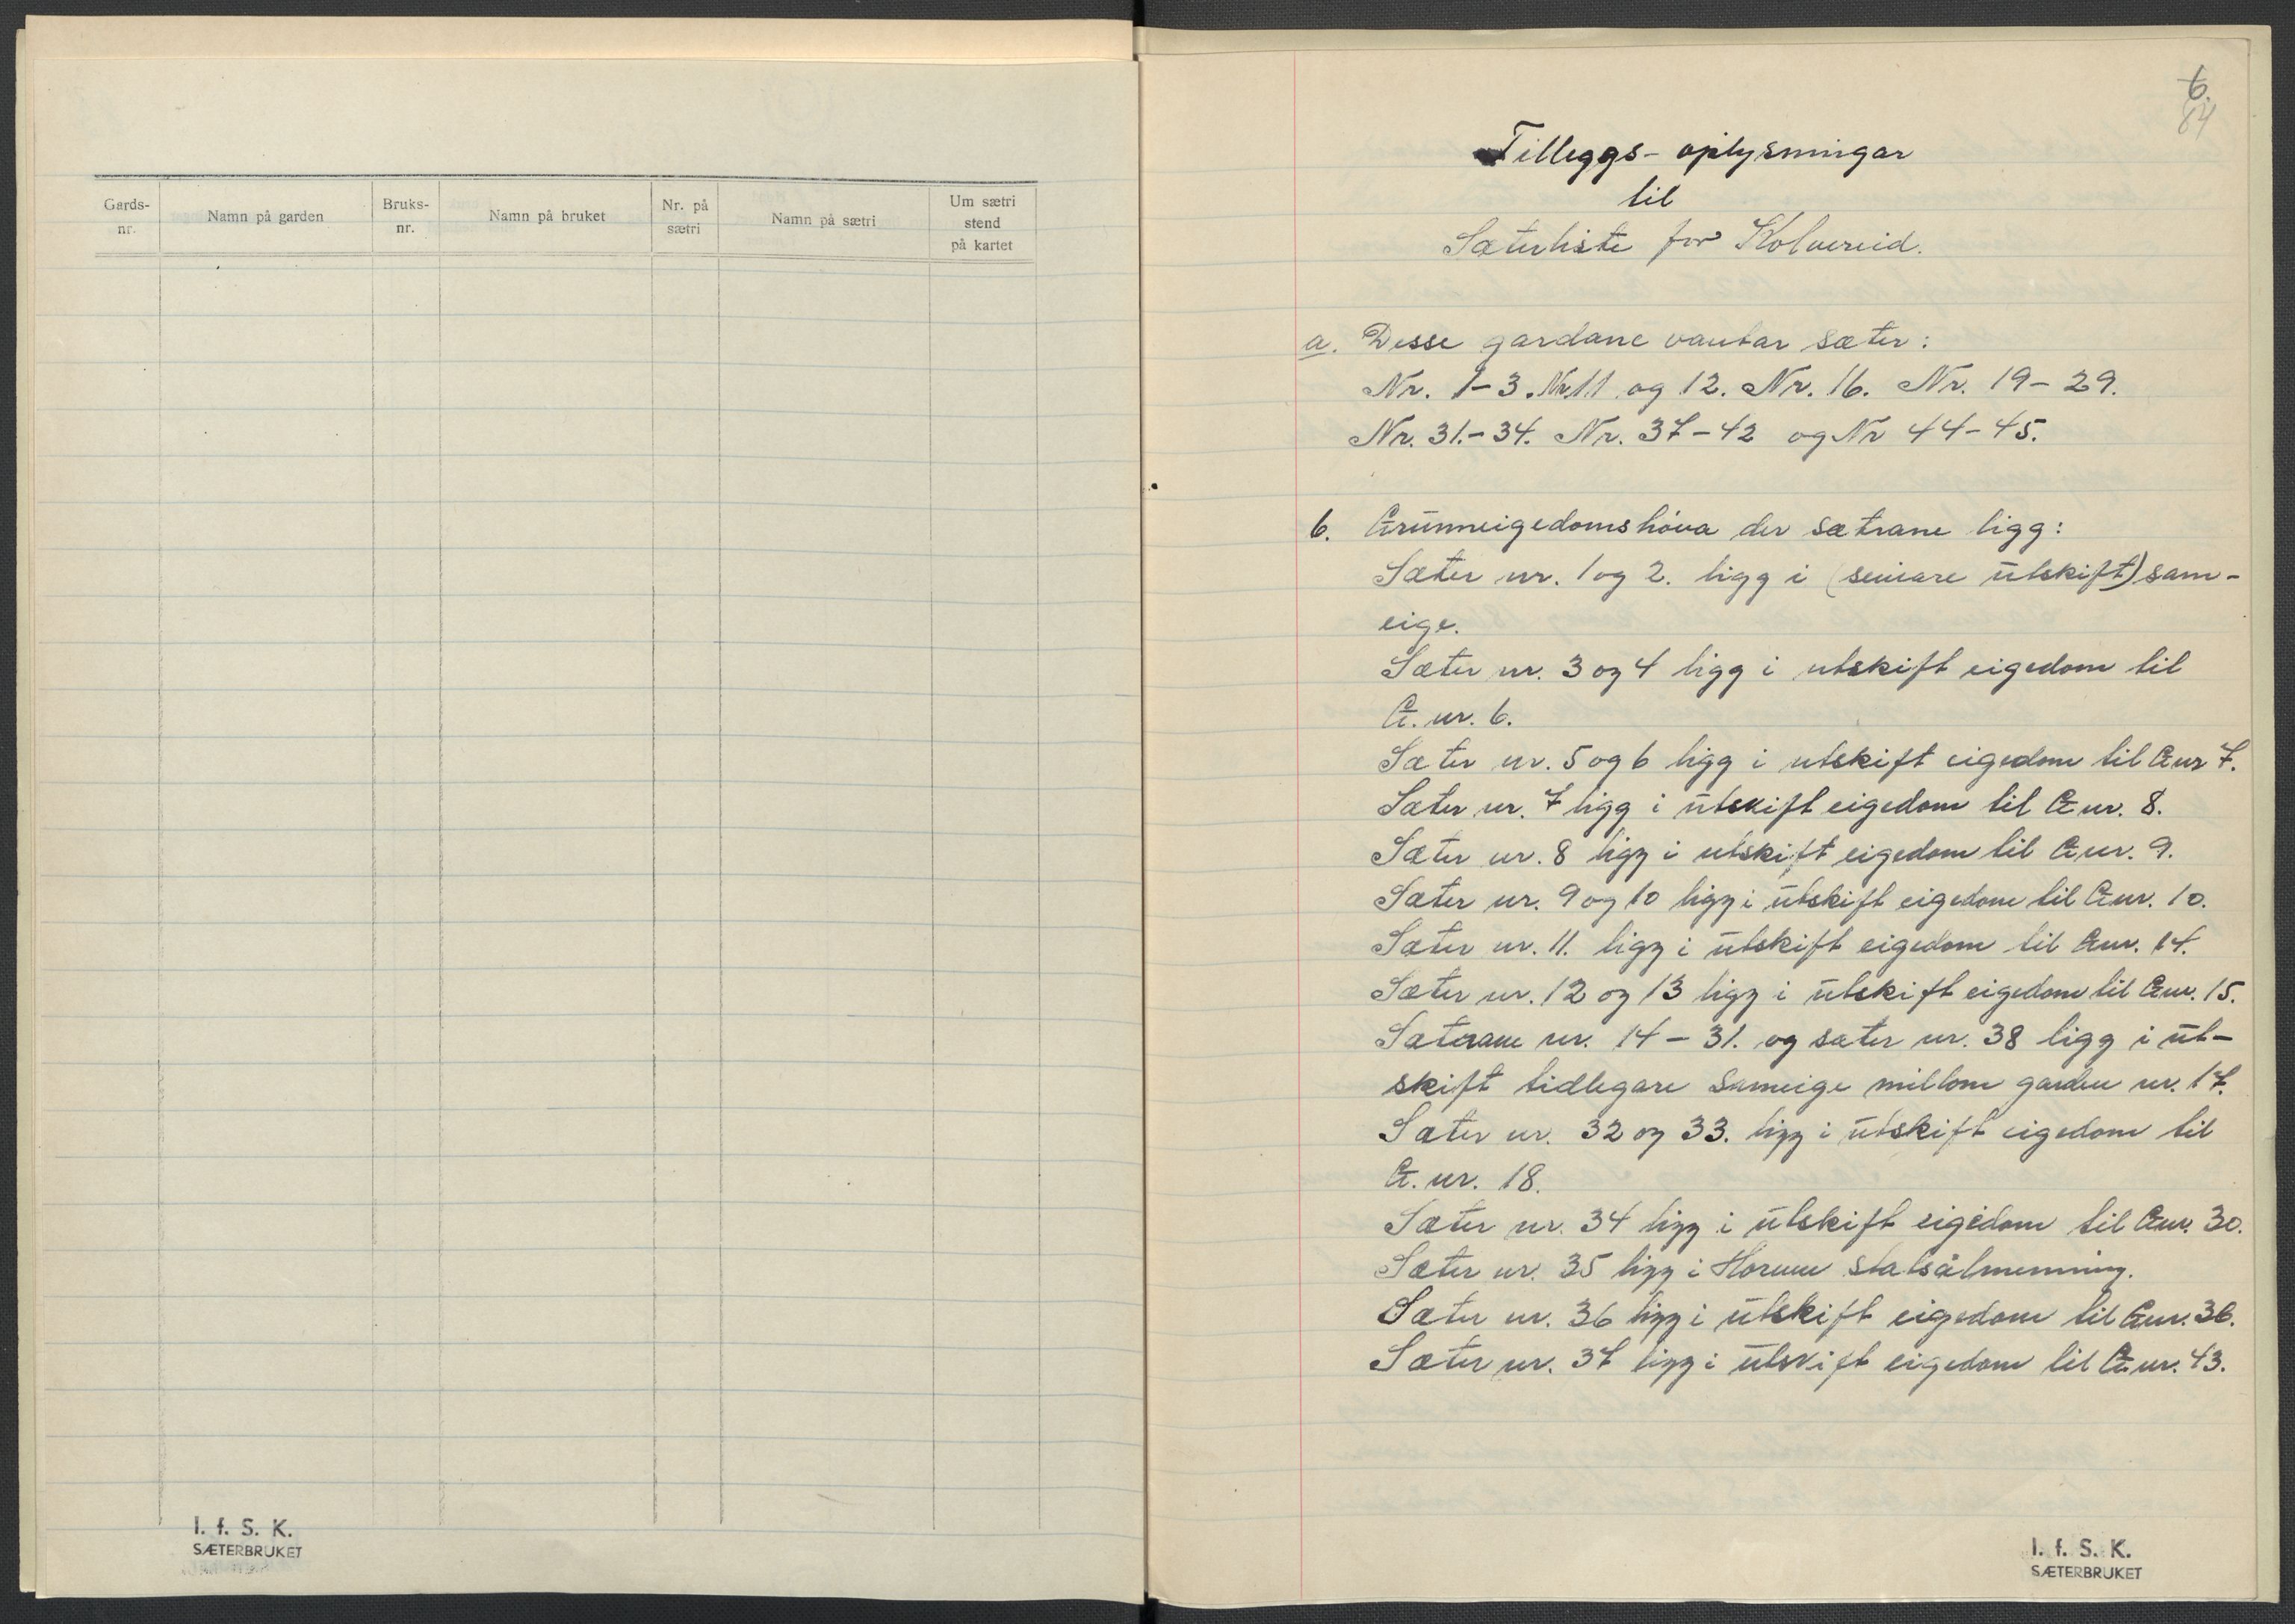 Gards-
nr.
Namn på garden
Bruks-
nr.
Namn på bruket
Nr. på
sætri
Namn på sætri
Um sætri
stend
på kartet
I. f. S. K.
SÆTERBRUKET
6.
84
Tilleggs-oplysningar
til
Sæterliste for Kolvereid.
a. Desse gardane vantar sæter:
Nr. 1-3. Nr. 11 og 12. Nr. 16. Nr. 19-29.
Nr. 31.-34. Nr. 37-42 og Nr 44-45.
b. Grunneigedomshøva der sætrane ligg:
Sæter nr. 1 og 2. ligg i (seinare utskift) sam-
eige.
Sæter nr. 3 og 4 ligg i utskift eigedom til
G. nr. 6.
Sæter nr. 5 og 6 ligg i utskift eigedom til G nr 7.
Sæter nr. 7 ligg i utskift eigedom til G nr. 8.
Sæter nr. 8 ligg i utskift eigedom til G nr. 9.
Sæter nr. 9 og 10 ligg i utskift eigedom til G nr. 10.
Sæter nr. 11. ligg i utskift eigedom til G nr. 14.
Sæter nr. 12 og 13 ligg i utskift eigedom til G nr. 15.
Sæterane nr. 14-31. og sæter nr. 38 ligg i ut-
skift tidlegare sameige millom garden nr. 17.
Sæter nr. 32 og 33. ligg i utskift eigedom til
G. nr. 18.
Sæter nr. 34 ligg i utskift eigedom til G nr. 30.
Sæter nr. 35 ligg i statsålmenning.
Sæter nr. 36 ligg i utskift eigedom til G nr. 36.
Sæter nr. 37 ligg i utskift eigedom til G. nr. 43.
I. f. S. K.
SÆTERBRUKET